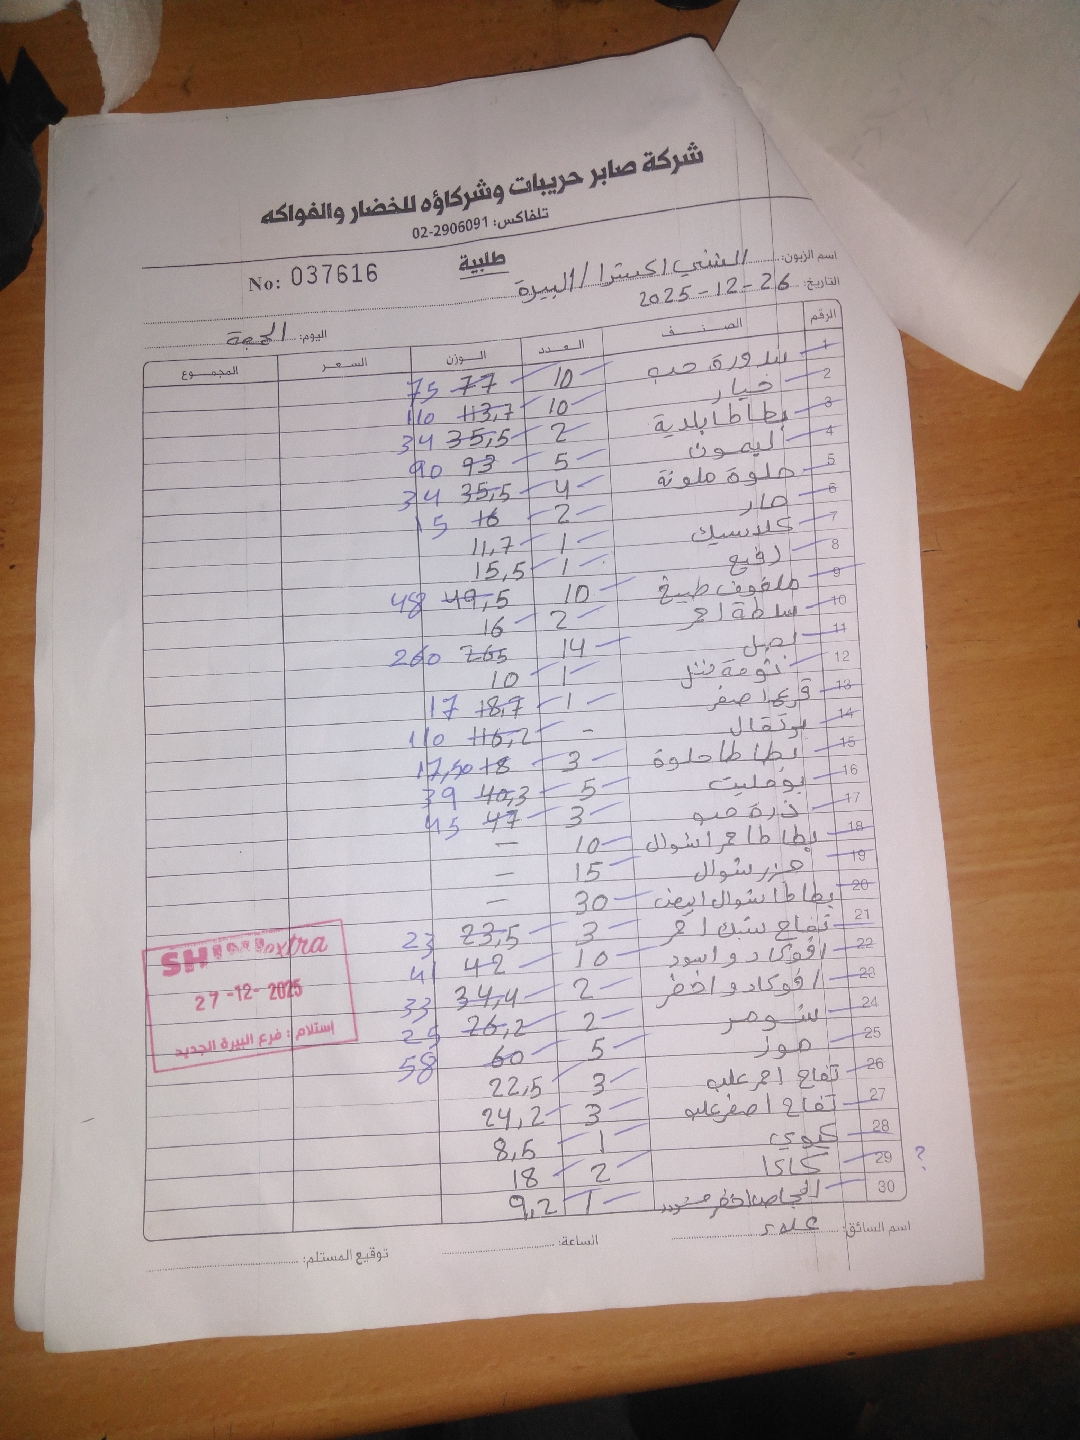 شركة صابر حريبات وشركاؤه للخضار والفواكه
تلفاكس: 02-2906091
No: 037616
طلبية
اسم الزبون: الشني اكسترا / البيرة
التاريخ: 26-12-2025
اليوم: الجمعة
الرقم الصنف العدد الوزن السعر المجموع
1 بندورة حب 10 77 75
2 خيار 10 113,7 110
3 بطاطا بلدية 2 35,5 34
4 ليمون 5 93 90
5 حلوة ملونة 4 35,5 34
6 حار 2 16 15
7 كلاسيك 1 11,7
8 رفيع 1 15,5
9 ملفوف طبيخ 10 49,5 48
10 سلطة احمر 2 16
11 بصل 14 265 260
12 ثومة 1 10
13 قرع اصفر 1 18,7 17
14 برتقال - 116,2 110
15 بطاطا حلوة 3 18 17,50
16 بوملیت 5 40,3 39
17 ذرة حبو 3 47 45
18 بطاطا حمرا شوال 10 -
19 جزر شوال 15 -
20 بطاطا شوال ابيض 30 -
21 تفاح سبك احمر 3 23,5 23
22 افوكادو اسود 10 42 41
23 افوكادو اخضر 2 34,4 33
24 شومر 2 26,2 25
25 موز 5 60 58
26 تفاح احمر علب 3 22,5
27 تفاح اصفر علب 3 24,2
28 كيوي 1 8,5
29 كاكا 2 18 ?
30 انجاص اخضر 1 9,2
اسم السائق:
الساعة:
توقيع المستلم:
extra
27-12-2025
إستلام: فرع البيرة الجديد